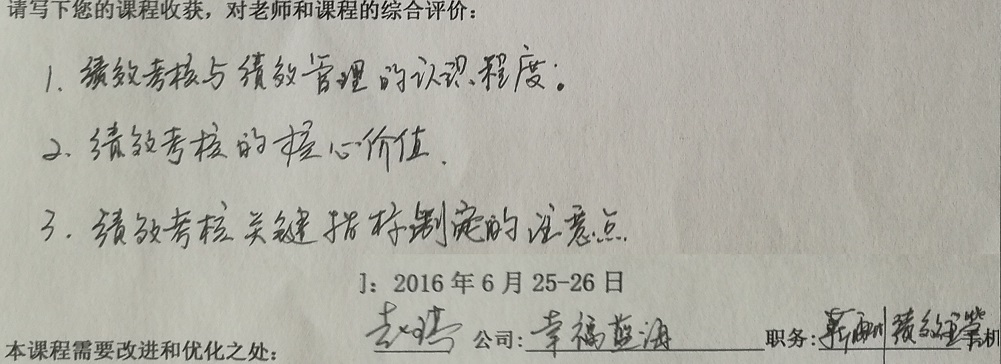 请写下您的课程收获，对老师和课程的综合评价：
1. 绩效考核与绩效管理的认识程度。
2. 绩效考核的核心价值.
3. 绩效考核关键指标制定的注意点
]：2016 年 6 月 25-26 日
公司：幸福蓝海 职务：薪酬绩效 机
本课程需要改进和优化之处：